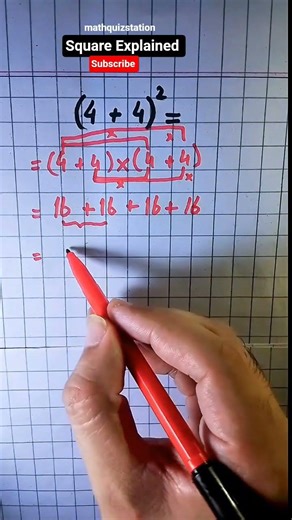 mathquizstation
Square Explained
Subscribe
(4 + 4)² =
= (4 + 4) × (4 + 4)
× × × ×
= 16 + 16 + 16 + 16
=